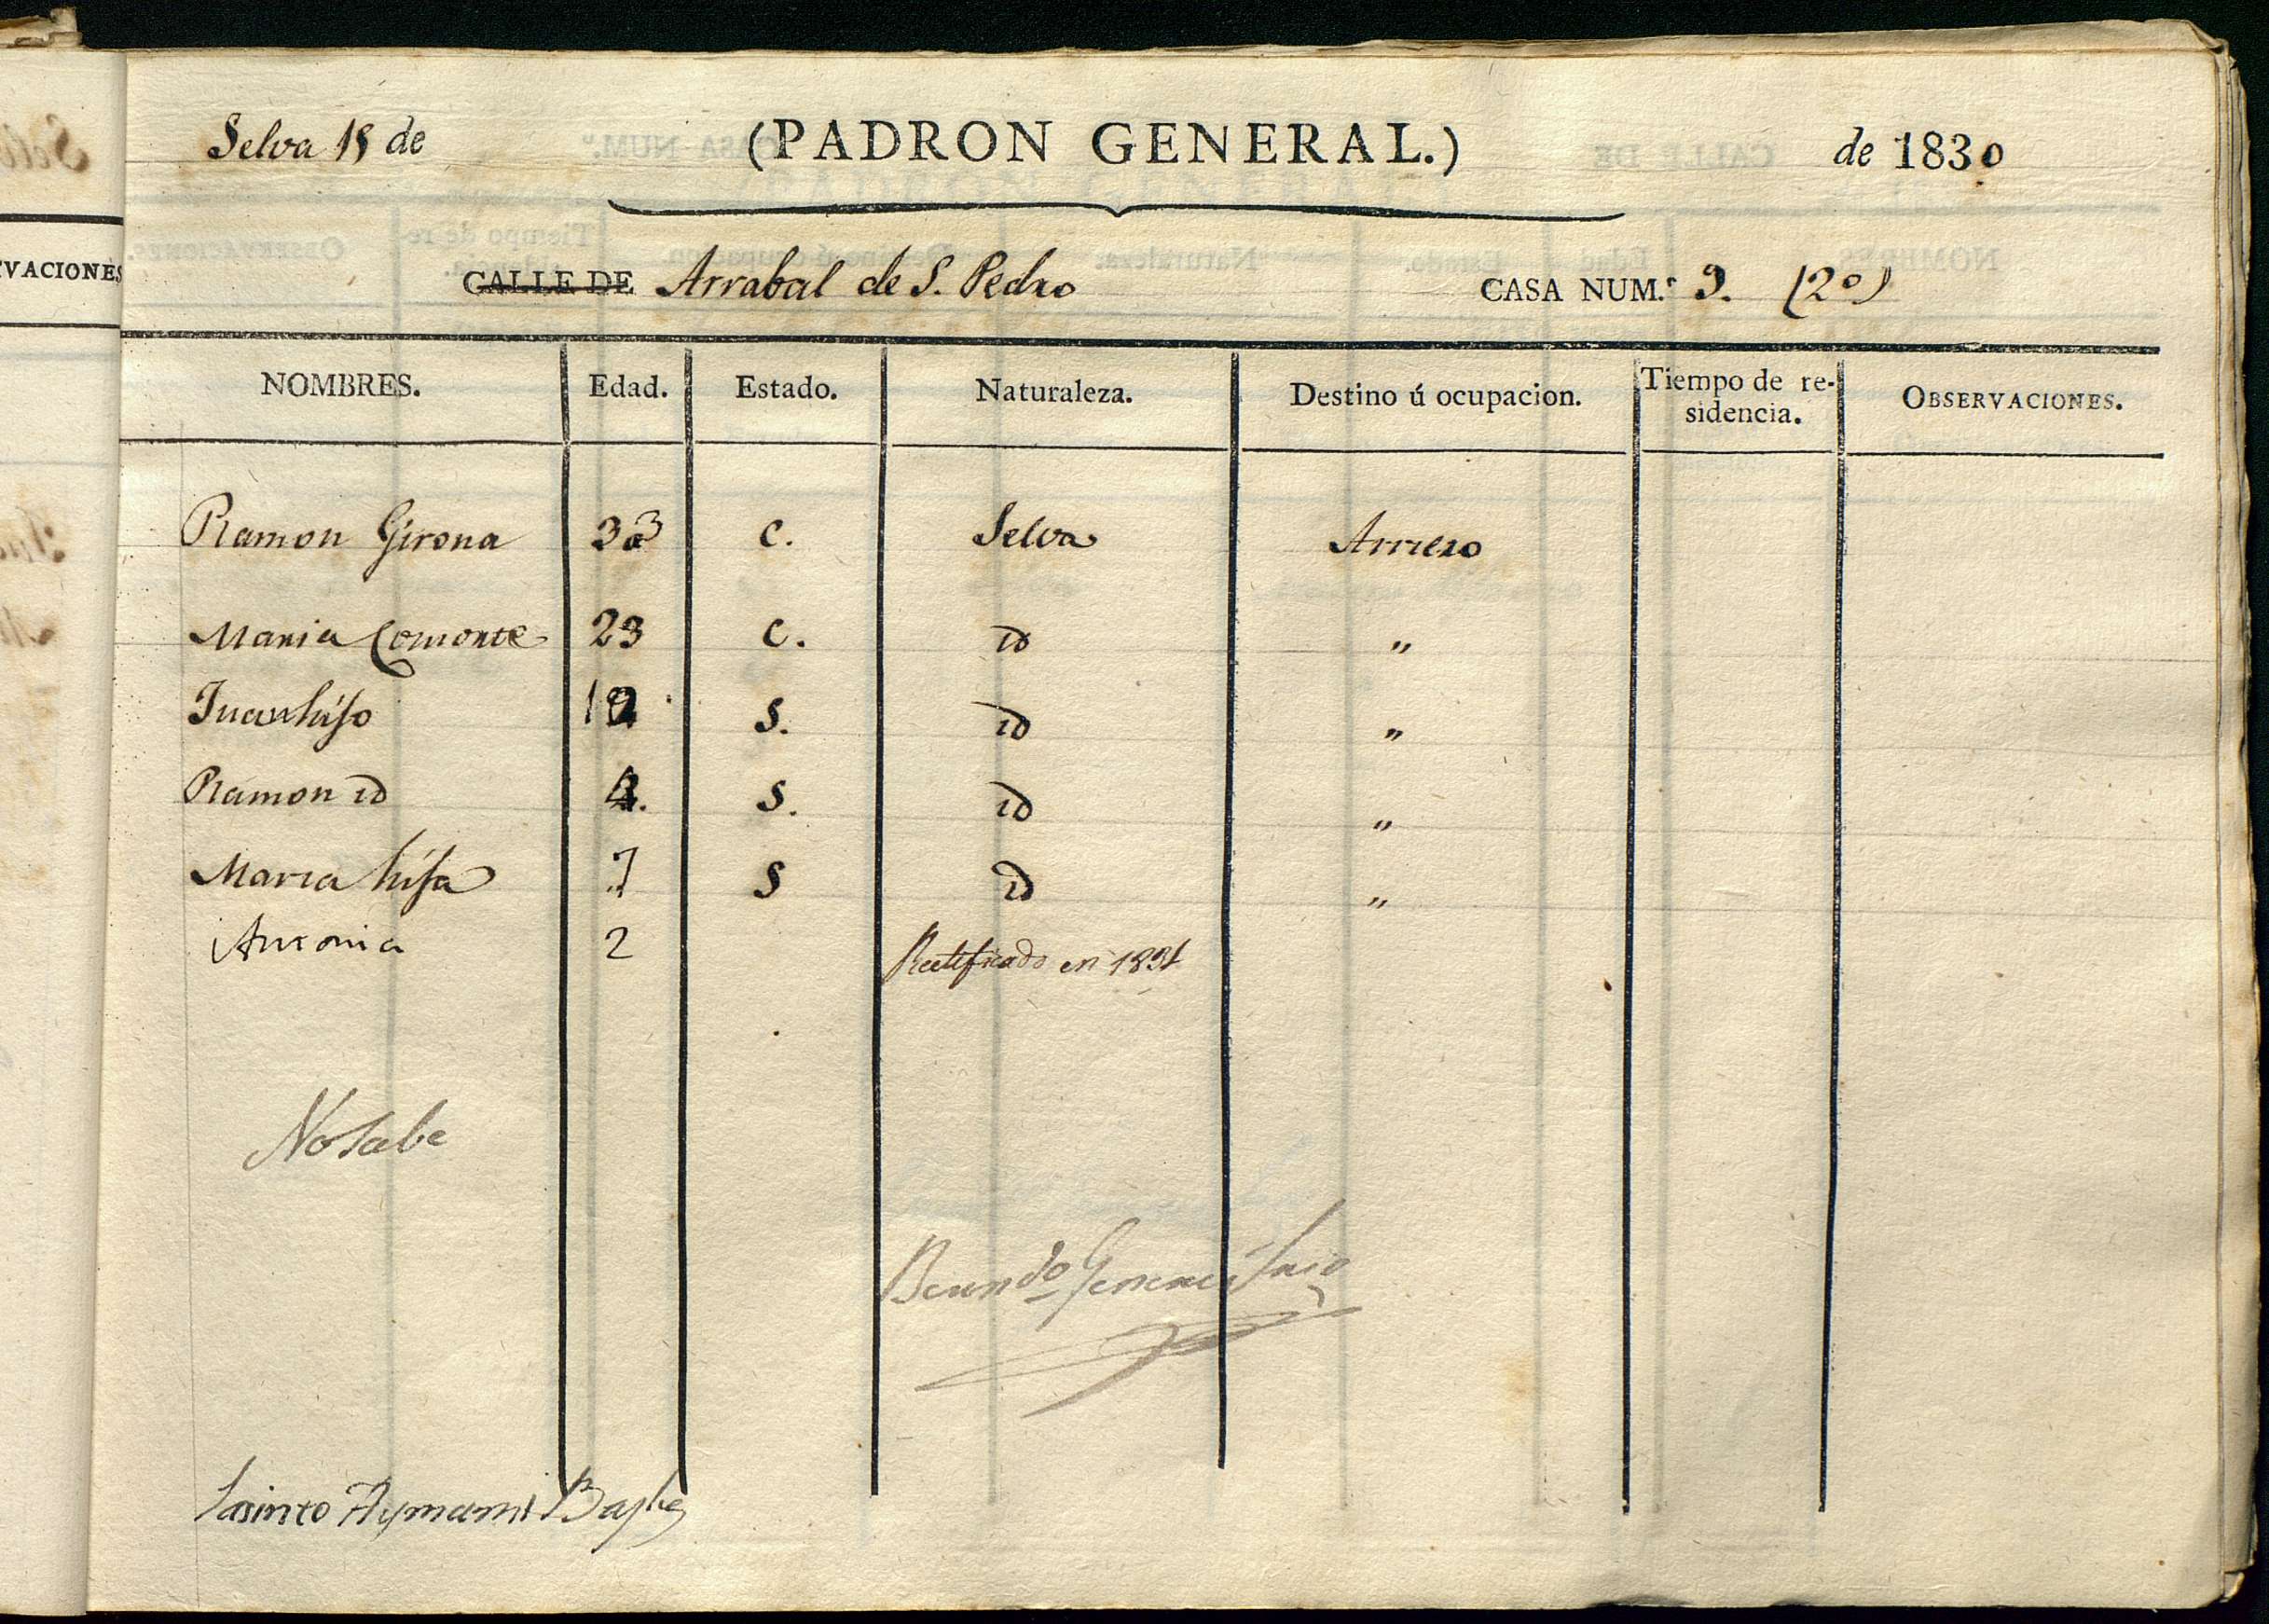 VACIONES
Selva 18 de (PADRON GENERAL.) de 1830
CALLE DE Arrabal de S. Pedro CASA NUM.º 9. (2º)
NOMBRES. Edad. Estado. Naturaleza. Destino ú ocupacion. Tiempo de re-
sidencia. OBSERVACIONES.
Ramon Girona 33 C. Selva Arriero
Maria 23 C. id "
Juan hijo S. id "
Ramon id S. id "
Maria hija 7 S id "
Antonia 2 Rectificado en 1831
No sabe
Jasinto Aymami Bayle